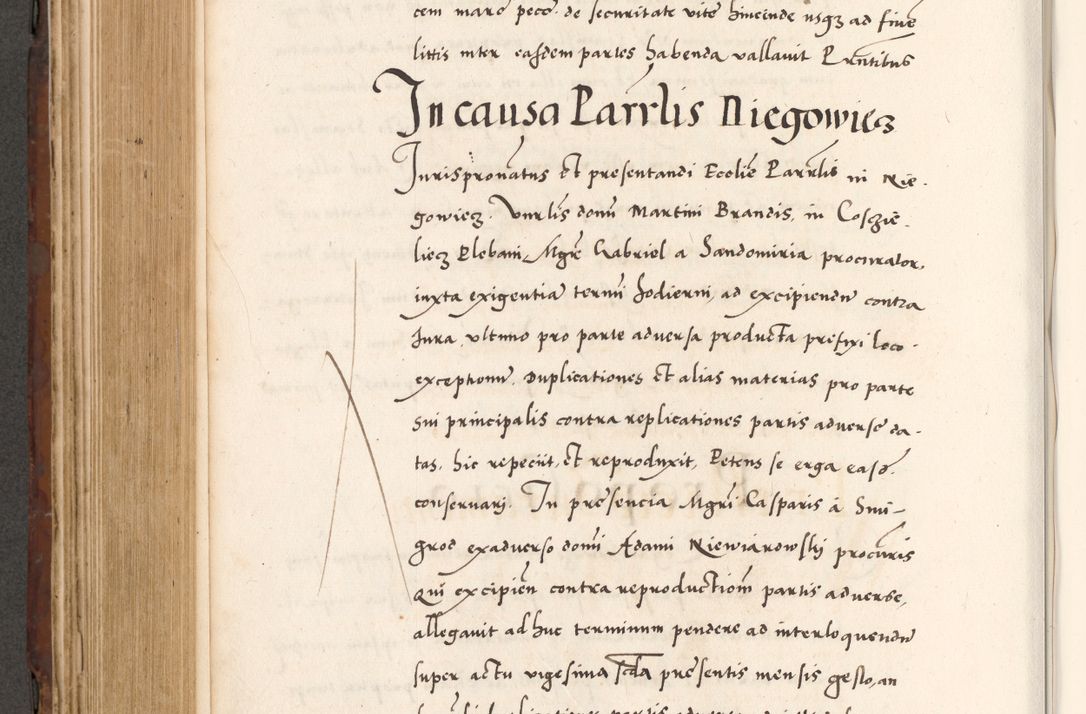 cem marc pecc. de securitate vite hincinde usq3 ad fine
littis inter easdem partes habenda vallavit Prntibus
In causa Parrlis Niegowie3
Jurispronatus et presentandi Ecclie Parrlis in Nie-
gowie3. Vnrlis domi Martini Brandis, in Coscie-
lie3 Plebani, Mgr Gabriel a Sandomiria procurator,
iuxta exigentia termi hodierni, ad excipiendu contra
Jura ultimo pro parte adversa producta prefixi loco
exceptionu. Duplicationes et alias materias pro parte
sui principalis contra replicationes partis adverse da-
tas, hic repeciit, et reproduxit, Petens se erga easd.
conservari. In presencia Mgri Casparis a Smi-
grod exadverso domi Adami Niewiarowski procuris
Qui excipien contra reproductiom partis adverse,
allegavit ad huc terminum pendere ad interloquendu
super actu vigesima scda presentis mensis gesto, an